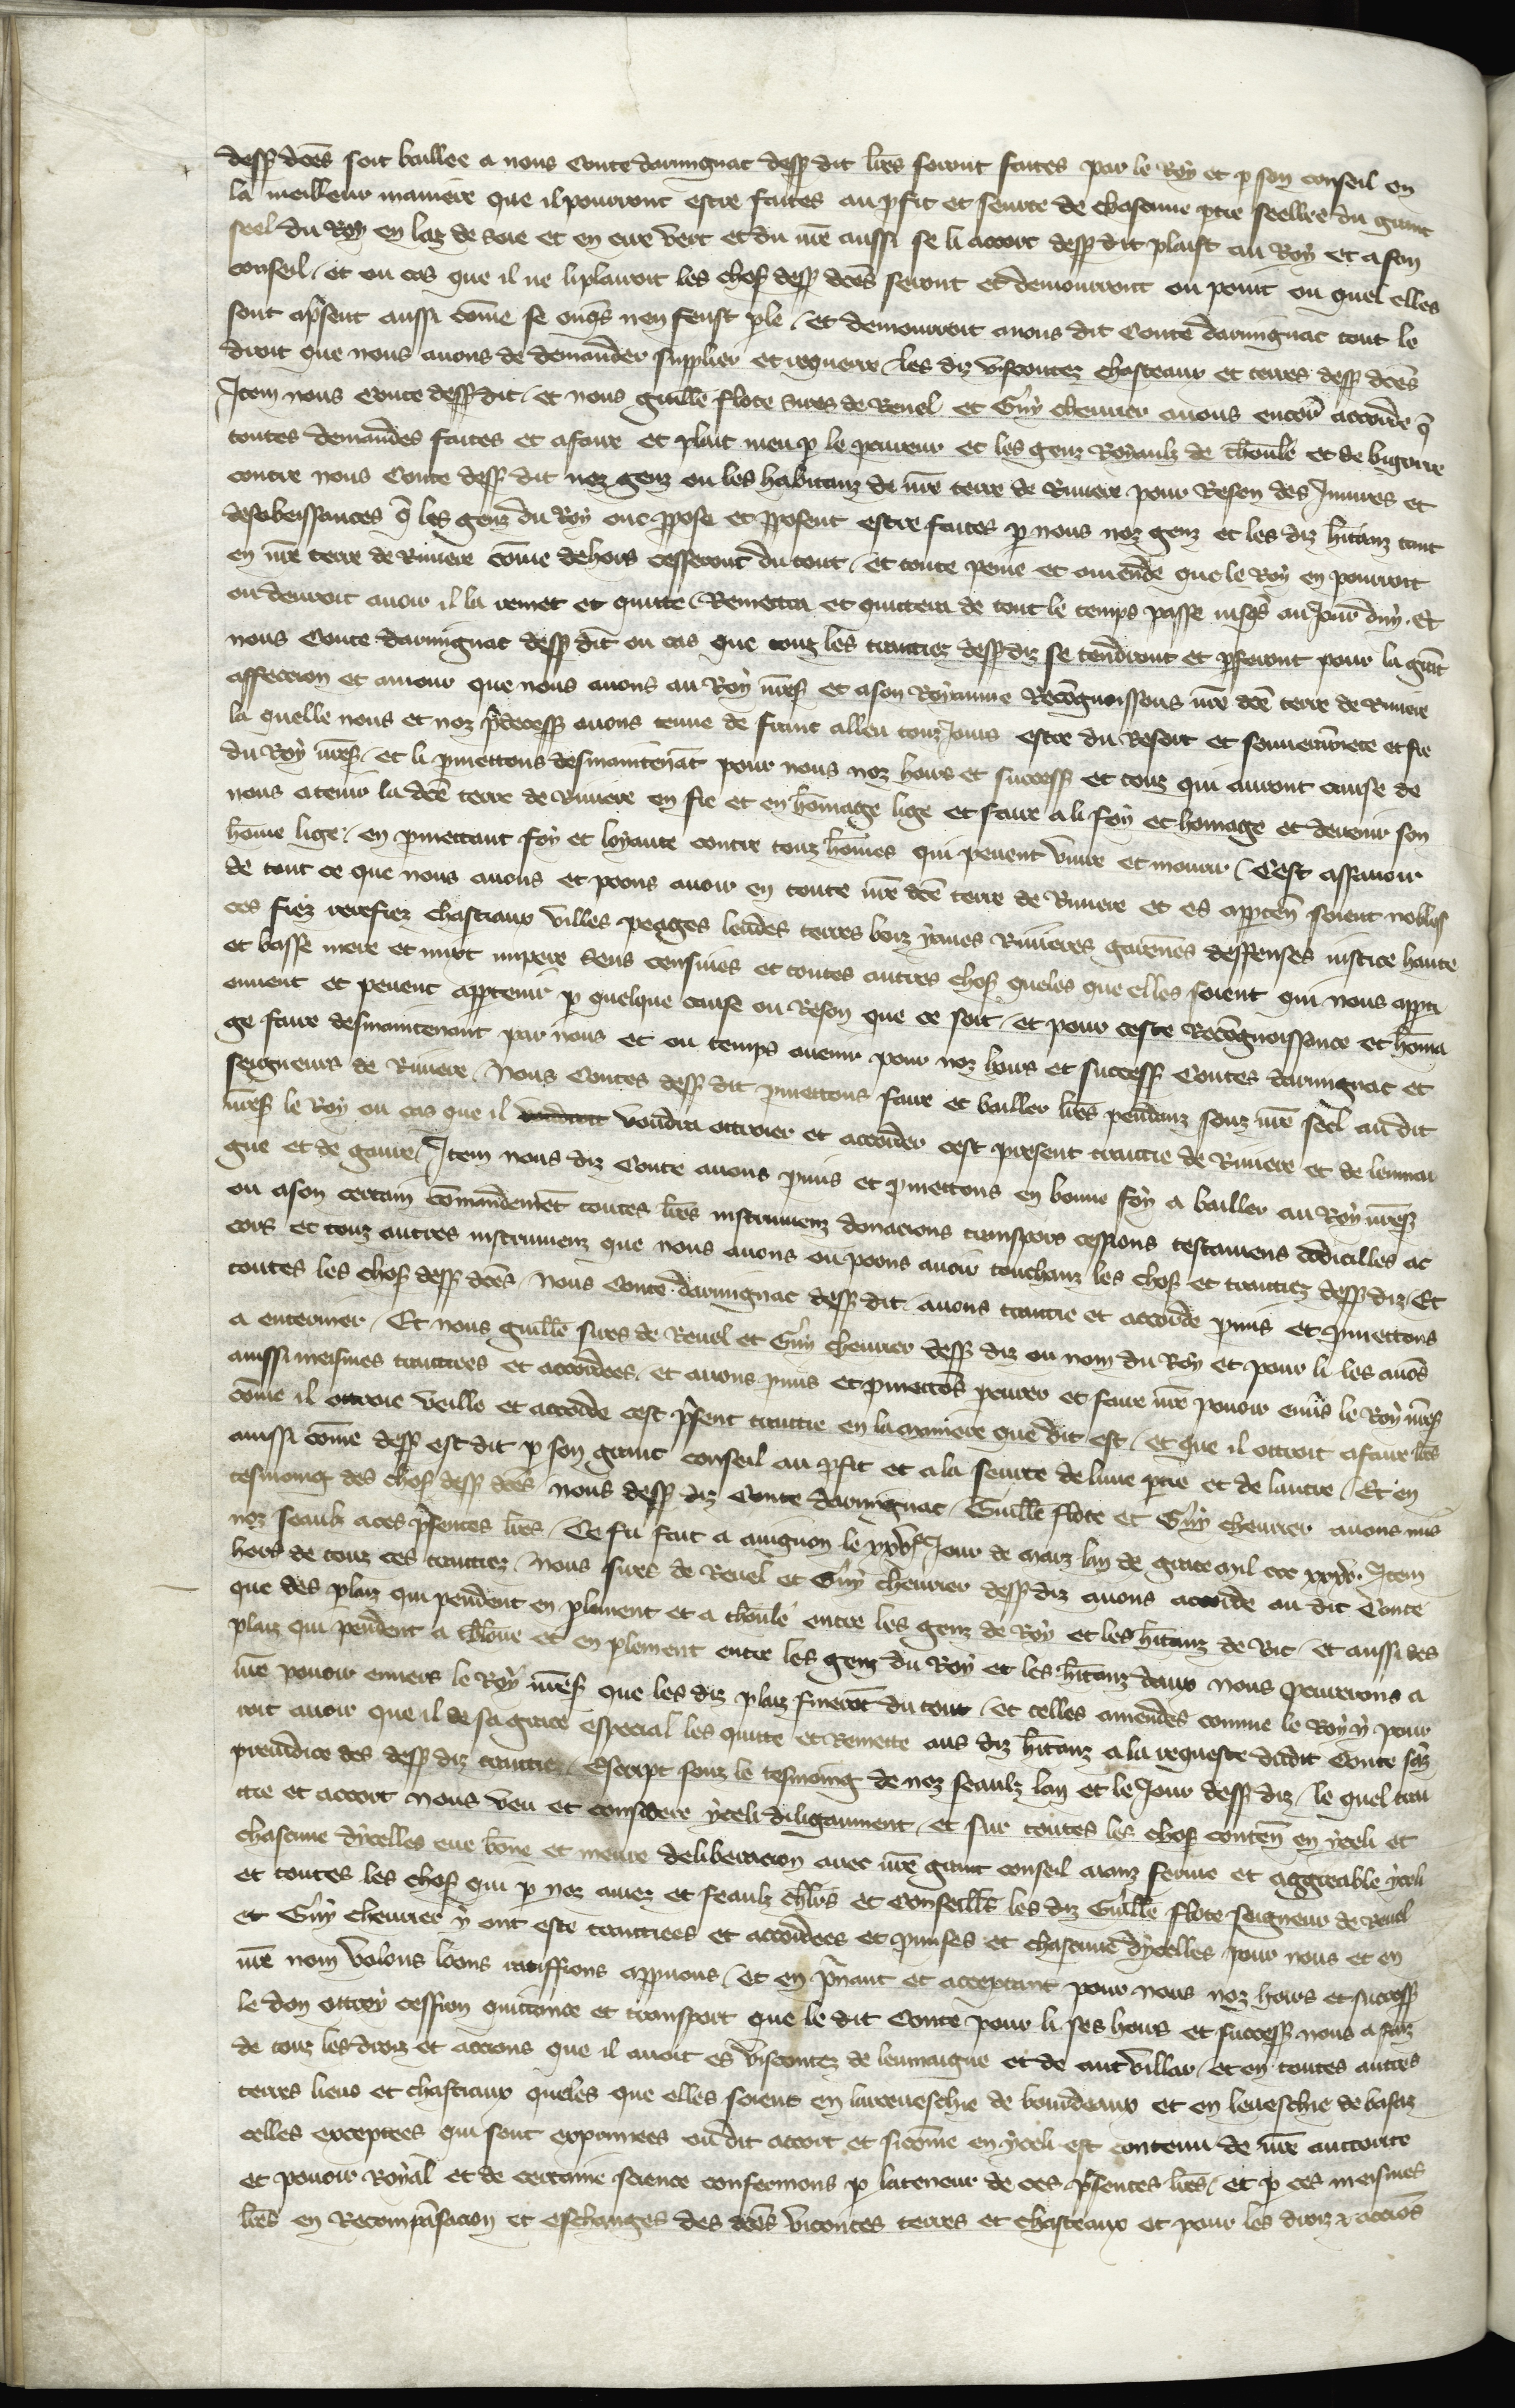 dess dces soit baillee a nous Conte darmignac dess dit lres seront faites par le Roy et p son conseil en
la meilleur maniere que il pourront estre faites au pfit et seurte de chascune ptie seellees du grant
seel du Roy en laz de soie et en cire vert et du nre aussi se li accort dess dit plaist au Roy et a son
conseil / et ou cas que il ne li plairoit les chos dess dces seront et demourront ou point ou quel elles
sont apsent aussi come se onqs nen feust ple / et demourroit anous dit Conte darmignac tout le
droit que nous auons de demander supplier et requerre les diz viscontez chasteaux et terres dess dces
Item nous Conte dess dit / et nous guille flote sires de Reuel et Guy cheurier auons encor accorde q
toutes demandes faites et afaire et plait meu p le pcureur et les genz Royaulz de tholose et de bigorre
contre nous Conte dess dit noz genz ou les habitanz de nre terre de Riuiere pour Reson des Iniures et
desobeissances q les genz du Roy ont ppose et pposent estre faites p nous noz genz et les diz hitanz tant
en nre terre de Riuiere come dehors cesseront du tout / et toute peine et amende que le Roy en pourroit
ou deuroit auoir il la remet et quitte / Remettra et quittera de tout le temps passe iusqs au Jour duy. Et
nous Conte darmignac dess dit ou cas que touz les traitiez dess diz se tendront et pferont pour la grat
affeccion et amour que nous auons au Roy nres et a son Royaume Recognoissons nre dce terre de Riuiere
la quelle nous et noz pdecess auons tenue de franc alleu touz Jours estre du Resort et souuerainete et fie
du Roy nres / et li pmettons desmaintenat pour nous noz hoirs et success et touz qui auront cause de
nous atenir la dce terre de Riuiere en fie et en homage lige et faire a li foy et homage et deuenir son
home lige / en pmettant foy et loyaute contre touz homes qui peuent viure et mourir / Cest assauoir
de tout ce que nous auons et poons auoir en toute nre dce terre de Riuiere et es appten soient nobless
ces fiez rerefiez chastiaux villes peages leudes terres boiz yaues Riuieres garenes deffenses iustice haute
et basse mere et mixt impere sens censiues et toutes autres chos queles que elles soient qui nous appti
ennent et peuent apptenir p quelque cause ou Reson que ce soit / et pour ceste Recognoissance et homa
ge faire desmaintenant par nous et ou temps auenir pour noz hoirs et success Contes darmignac et
seigneurs de Riuiere / Nous Contes dess dit pmettons faire et bailler lres pendanz souz nre seel au dit
nres le Roy ou cas que il voudroit voudra ottroier et accorder cest present traittie de Riuiere et de leumai
gne et de gaure / Item nous diz Conte auons pmis et pmettons en bonne foy a bailler au Roy nres
ou ason certain comandement toutes lres instrumenz donacions transpors cessions testamens codicilles ac
cors et touz autres instrumenz que nous auons ou poons auoir touchanz les chos et traittiez dess diz / Et
toutes les chos dess dces / Nous Conte darmignac dess dit auons traittie et accorde pmis et pmettons
a enteriner / Et nous guille sires de Reuel et Guy cheurier dess diz ou nom du Roy et pour li les auos
aussi meismes traittiees et accordees / et auons pmis et pmettos pcurer et faire nre pouoir enuis le Roy nres
come il ottroie veille et accorde cest psent traittie en la maniere que dit est / et que il ottroit a faire lres
aussi come dess est dit p son grant conseil au pfit et a la seurte de lune ptie et de lautre / Et en
tesmoing des chos dess dces / nous dess diz Conte darmignac / Guille flote et Guy cheurier auons mis
noz seaulx aces psentes lres / Ce fu fait a auignon le xxvje Jour de marz lan de grace mil ccc xxxv. Item
hors de touz ces traittiez / Nous sires de Reuel et Guy cheurier dess diz auons accorde au dit Conte
que des plaiz qui pendent en plement et a tholose entre les genz de Roy et les hitanz de Vic / et aussi des
plaiz qui pendent a tholouse et en plement entre les genz du Roy et les hitanz daux nous pcurerons a
nre pouoir enuers le Roy nres que les diz plaiz finerot du tout / et celles amendes comme le Roy y pour
roit auoir que il de sa grace especial les quitte et Remette aus diz hitanz a la requeste dudit Conte saz
preiudice des dess diz traittiez / Escript souz le tesmoing de noz seaulz lan et le Jour dess diz / le quel trai
ttie et accort Nous veu et considere yceli diligaument / et sur toutes les chos conten en yceli et
chascune dycelles eue bone et meure deliberacion auec nre grant conseil aianz ferme et aggreable yceli
et toutes les chos qui p noz amez et feaulz chlrs et Conseills les diz Guille flote seigneur de Reuel
et Guy cheurier y ont este traittiees et accordees et pmises et chascune dycelles pour nous et en
nre nom volons loons ratiffions appuons / et en pnant et acceptant pour nous noz hoirs et success
le don ottroy cession quittance et transport que le dit Conte pour li ses hoirs et success nous a faiz
de touz les droiz et accions que il auoit es viscontez de leumaigne et de aut villar / et en toutes autres
terres lieus et chastiaux queles que elles soient en larceueschie de bourdeaux et en leueschie de basaz
celles exceptees qui sont exprimees ou dit accort et sicome en yceli est contenu de nre auctorite
et pouoir Royal et de certaine science confermons p la teneur de ces psentes lres / et p ces meismes
lres en Recompensacion et eschanges des dces vicontes terres et chasteaux et pour les droiz & accios